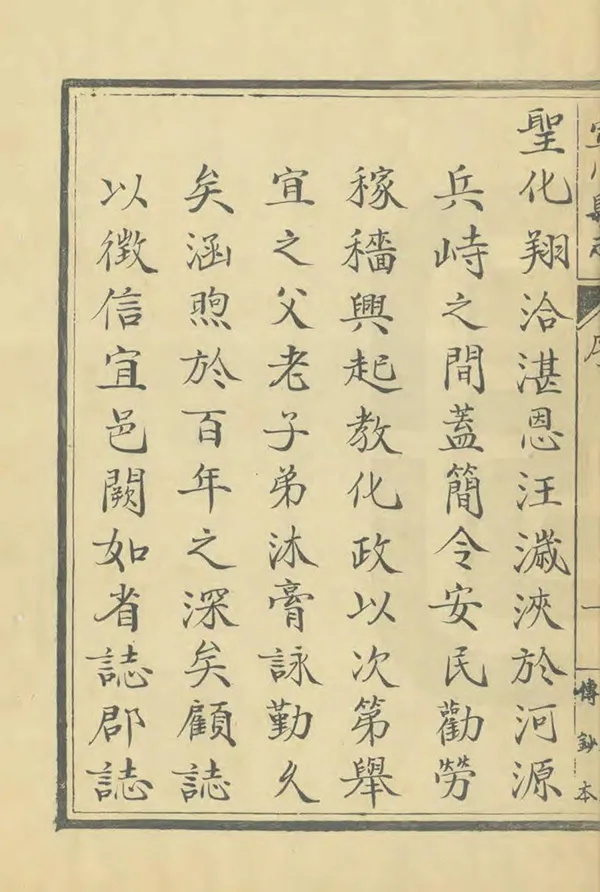 一
傳鈔本
聖化翔洽湛恩汪濊浹於河源
兵峙之間蓋簡令安民勸勞
稼穡興起教化政以次第舉
宜之父老子弟沐膏詠勤久
矣涵煦於百年之深矣顧誌
以徵信宜邑闕如省誌郡誌